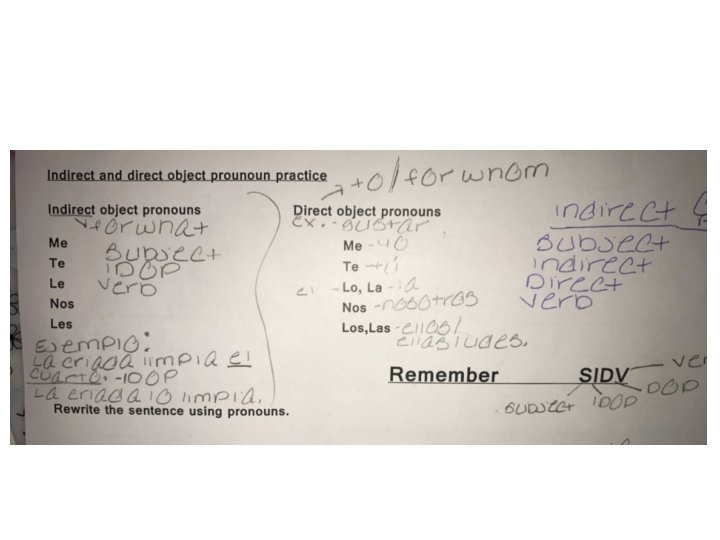 Indirect and direct object prounoun practice
to/for whom
Indirect object pronouns
for what
Me
Subject
Te
IDOP
Le
verb
Nos
Les
Ejemplo:
La criada limpia el
cuarto. -IDOP
La criada lo limpia.
Rewrite the sentence using pronouns.
Direct object pronouns
ex. - gustar
Me - yo
Te - tú
el - Lo, La - la
Nos - nosotros
Los,Las - ellos/
ellas/udes.
indirect
Subject
indirect
Direct
verb
Remember SIDV
ver
DOP
IDOP
subject